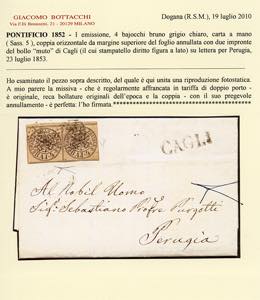 GIACOMO BOTTACCHI
Via P.B. Bensoenti, 21 - 20129 MILANO
Dogana (R.S.M.), 19 luglio 2010
PONTIFICIO 1852 - I emissione, 4 bajocchi bruno grigio chiaro, carta a mano
( Sass. 5 ), coppia orizzontale da margine superiore del foglio annullata con due impronte
del bollo "muto" di Cagli (il cui stampatello diritto figura a lato) su lettera per Perugia,
23 luglio 1853.
Ho esaminato il pezzo sopra descritto, del quale è qui unita una riproduzione fotostatica.
A mio parere la missiva - che è regolarmente affrancata in tariffa di doppio porto -
è originale, reca bollature originali dell'epoca e la coppia - con il suo pregevole
annullamento - è perfetta: l'ho firmata
CAGLI
Al Nobil Uomo
Sig. Sebastiano Profre Purgotti
Perugia